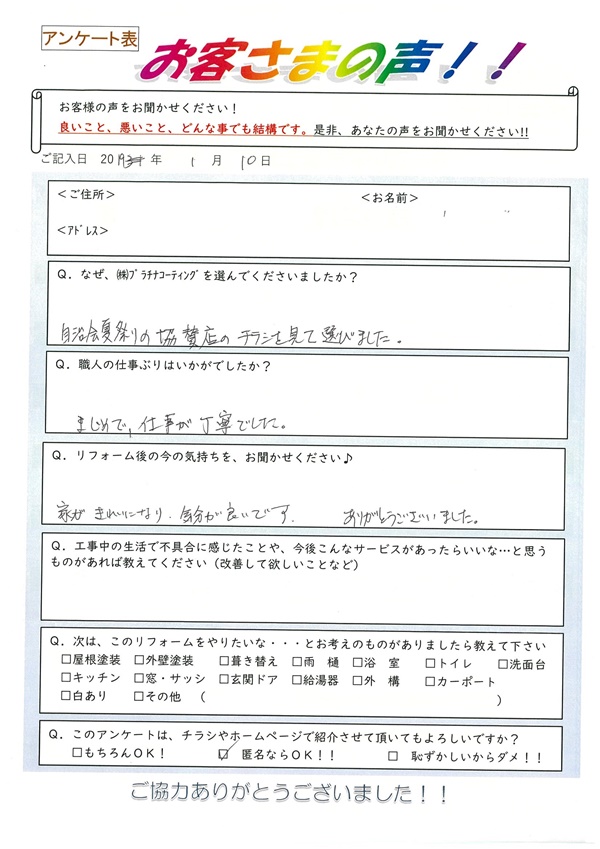 アンケート表
お客さまの声！！
お客様の声をお聞かせください！
良いこと、悪いこと、どんな事でも結構です。是非、あなたの声をお聞かせください!!
ご記入日 20 年 1 月 10 日
＜ご住所＞ ＜お名前＞
＜ｱﾄﾞﾚｽ＞
Q．なぜ、㈱ﾌﾟﾗﾁﾅｺｰﾃｨﾝｸﾞを選んでくださいましたか？
自治会夏祭りの協賛店のチラシを見て選びました。
Q．職人の仕事ぶりはいかがでしたか？
まじめで，仕事が丁寧でした。
Q．リフォーム後の今の気持ちを、お聞かせください♪
家がきれいになり、気分が良いです． ありがとうございました。
Q．工事中の生活で不具合に感じたことや、今後こんなサービスがあったらいいな…と思う
ものがあれば教えてください（改善して欲しいことなど）
Q．次は、このリフォームをやりたいな・・・とお考えのものがありましたら教えて下さい
□屋根塗装 □外壁塗装 □葺き替え □雨 樋 □浴 室 □トイレ □洗面台
□キッチン □窓・サッシ □玄関ドア □給湯器 □外 構 □カーポート
□白あり □その他 （ ）
Q．このアンケートは、チラシやホームページで紹介させて頂いてもよろしいですか？
□もちろんOK！ ☑ 匿名ならOK！！ □ 恥ずかしいからダメ！！
ご協力ありがとうございました！！